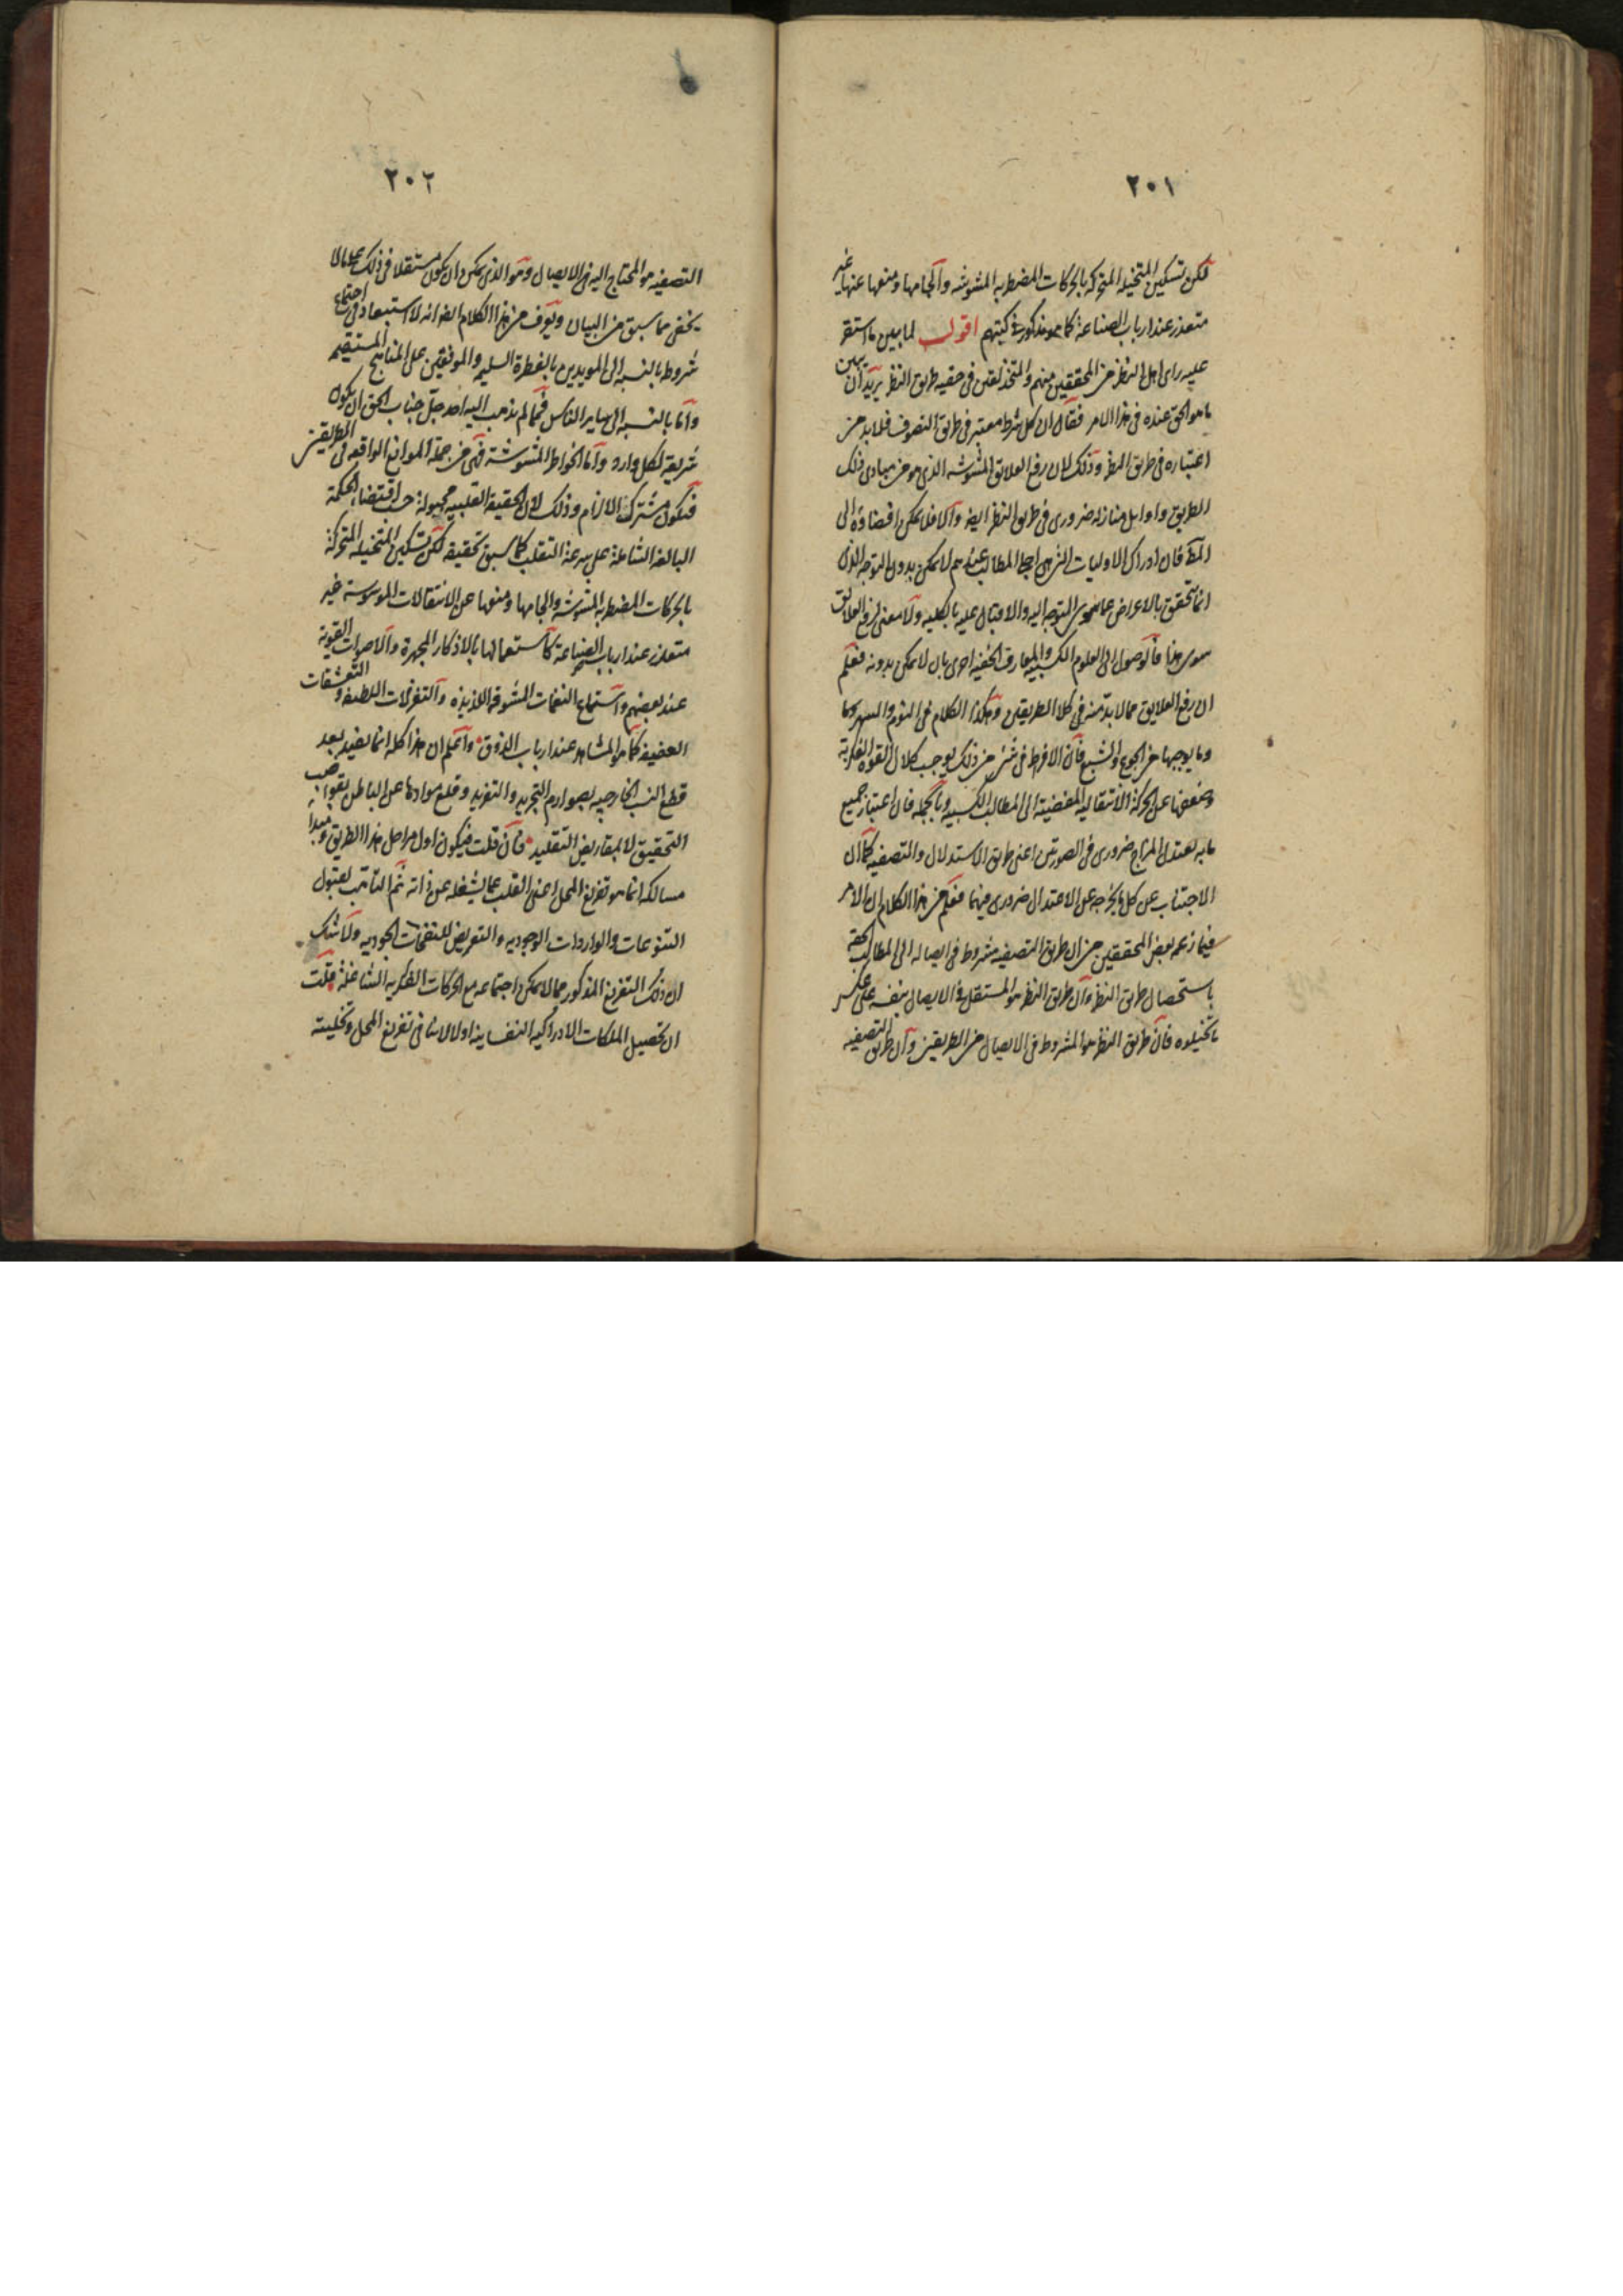 ٢٠١
لكن تسكين المتخيله المتحركه بالحركات المضطربه المشوشه والجامها ومنعها عنها غير
متعذر عند ارباب الصناعة كما هو مذكور في كتبهم اقول لما بين ما استقر
عليه راى اهل النظر من المحققين منهم والمتخذلقين في حقيه طريق النظر يريد ان يبين
ما هو الحق عنده في هذا الامر فقال ان كل شرط معتبر في طريق التصوف فلا بد من
اعتباره في طريق النظر وذلك لان رفع العلايق المشوشه الذى هو من مبادى ذلك
الطريق واوايل منازله ضرورى في طريق النظر ايضا والا فلا يمكن افضاؤه الى
المط فان ادراك الاوليات التى هى اجلى المطالب عندهم لا يمكن بدون التوجه الذى
انما يتحقق بالاعراض عما سوى المتوجه اليه والاقبال عليه بالكليه ولا معنى لرفع العلايق
سوى هذا فالوصول الى العلوم الكسبيه والمعارف الخفيه احرى بان لا يمكن بدونه فعلم
ان رفع العلايق مما لا بد منه في كلا الطريقين وهكذا الكلام في النوم والسهر وما
وما يوجبها من الجوع والشبع فان الافراط في شئ من ذلك يوجب كلال القوه الفكرية
وضعفها عن الحركة الانتقاليه المفضية الى المطالب الكسبيه وبالجمله فان اعتبار جميع
ما به يعتدل المزاج ضرورى في الصورتين اعنى طريق الاستدلال والتصفيه كما ان
الاجتناب عن كل ما يخرجه عن الاعتدال ضرورى فيهما فعلم من هذا الكلام ان الامر
فيما زعمه بعض المحققين من ان طريق التصفيه مشروط في ايصاله الى المطالب الحقه
باستحصال طريق النظر وان طريق النظر هو المستقل في الايصال بنفسه على عكس
ما تخيلوه فان طريق النظر هو المشروط في الايصال من الطريقين وان طريق التصفيه
٢٠٢
التصفيه هو المحتاج اليه في الايصال وهو الذى يمكن ان يكون مستقلا في ذلك على ما لا
يخفى مما سبق من البيان ويعرف من هذا الكلام ايضا انه لا استبعاد في اجتماع
شروط بالنسبه الى المويدين بالفطرة السليمه والموفقين على المناهج المستقيمه
واما بالنسبه الى ساير الناس فمما لم يذهب اليه احد جل جناب الحق ان يكون
شريعة لكل وارد واما الخواطر المشوشة فهى من جملة الموانع الواقعه في الطريقين
فيكون مشترك الالزام وذلك لان الحقيقة القلبيه مجبولة حسب اقتضاء الحكمة
البالغه الشاملة على سرعة التقلب كما سبق تحقيقه لكن تسكين المتخيله المتحركة
بالحركات المضطربه المشوشه والجامها ومنعها عن الانتقالات الموسوسة غير
متعذر عند ارباب الصناعة كاستعمالها بالاذكار المجهرة والاصوات القوية
عند بعضهم واستماع النغمات المشوقه اللذيذه والتغزلات اللطيفه والتعشقات
العفيفه كما هو المشاهد عند ارباب الذوق واعلم ان هذا كله انما يفيد بعد
قطع النسب الخارجيه بصوارم التجريد والتفريد وقلع موادها عن الباطن بقواضب
التحقيق لا بمقاريض التقليد فان قلت فيكون اول مراحل هذا الطريق ومبدأ
مسالكه انما هو تفريغ المحل اعنى القلب عما يشغله عن ذاته ثم التاهب لقبول
التنوعات والواردات الوجوديه والتعريض للنفحات الجوديه ولا شك
ان ذلك التفريغ المذكور مما لا يمكن اجتماعه مع الحركات الفكريه الشاغلة قلت
ان تحصيل الملكات الادراكيه النفسانيه اولا لا ينافى تفريغ المحل وتخليته